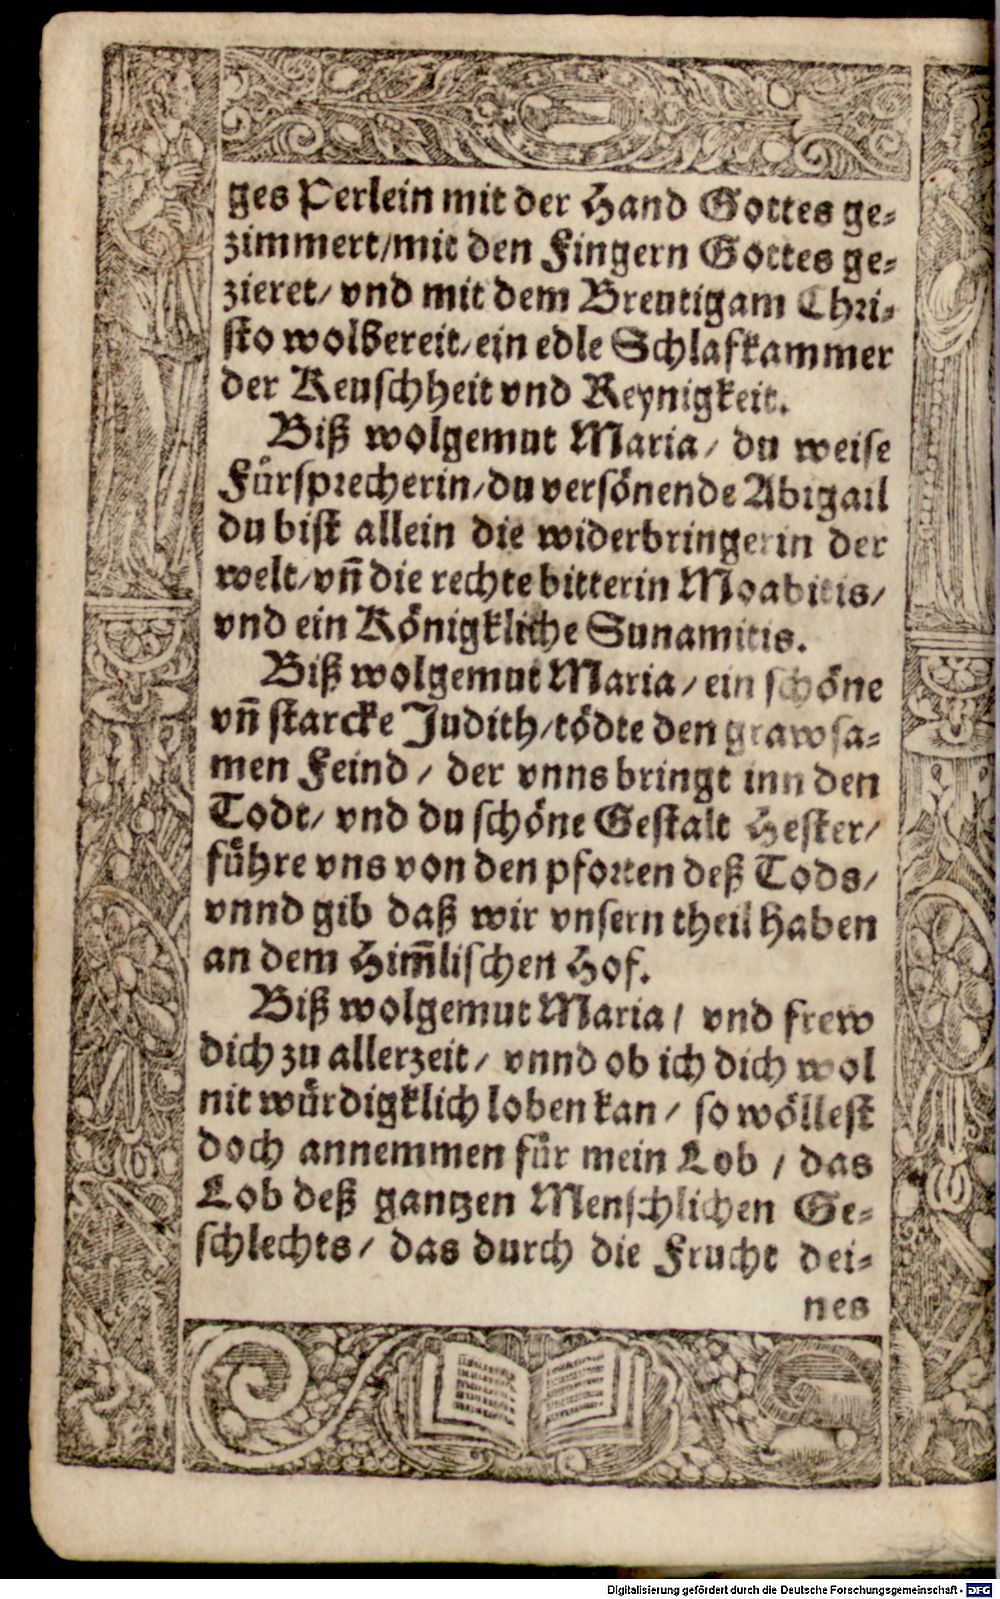 ges Perlein mit der Hand Gottes ge⸗
zimmert/mit den Fingern Gottes ge⸗
zieret/ vnd mit dem Breutigam Chri⸗
sto wolbereit/ein edle Schlafkammer
der Keuschheit vnd Reynigkeit.
Biß wolgemut Maria/ du weise
Fuͤrsprecherin/du versoͤnende Abigail
du bist allein die widerbringerin der
welt/vn̄ die rechte bitterin Moabitis/
vnd ein Koͤnigkliche Sunamitis.
Biß wolgemut Maria/ein schoͤne
vn̄ starcke Judith/toͤdte den grawsa⸗
men Feind/ der vnns bringt inn den
Todt/ vnd du schoͤne Gestalt Hester/
fuͤhre vns von den pforten deß Tods/
vnnd gib daß wir vnsern theil haben
an dem Him̄lischen Hof.
Biß wolgemut Maria/ vnd frew
dich zu allerzeit/ vnnd ob ich dich wol
nit wuͤrdigklich loben kan/ so woͤllest
doch annemmen fuͤr mein Lob/ das
Lob deß gantzen Menschlichen Ge⸗
schlechts/ das durch die Frucht dei⸗
nes
Digitalisierung gefördert durch die Deutsche Forschungsgemeinschaft - DFG